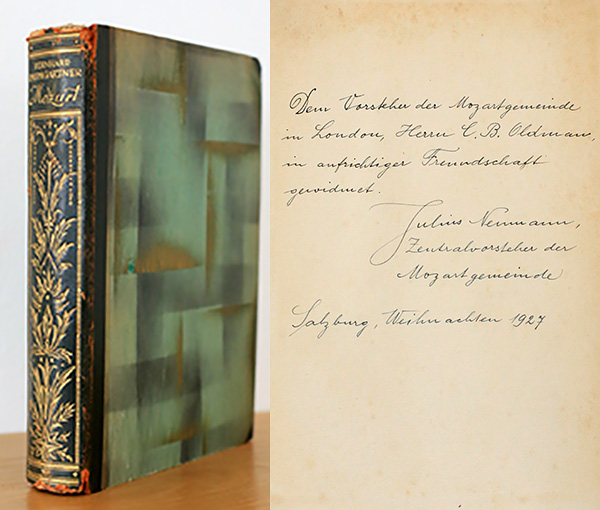 BERNHARD
PAUMGARTNER
Mozart
Dem Vorsteher der Mozartgemeinde
in London, Herrn C. B. Oldman,
in aufrichtiger Freundschaft
gewidmet.
Julius Neumann,
Zentralvorsteher der
Mozartgemeinde
Salzburg, Weihnachten 1927